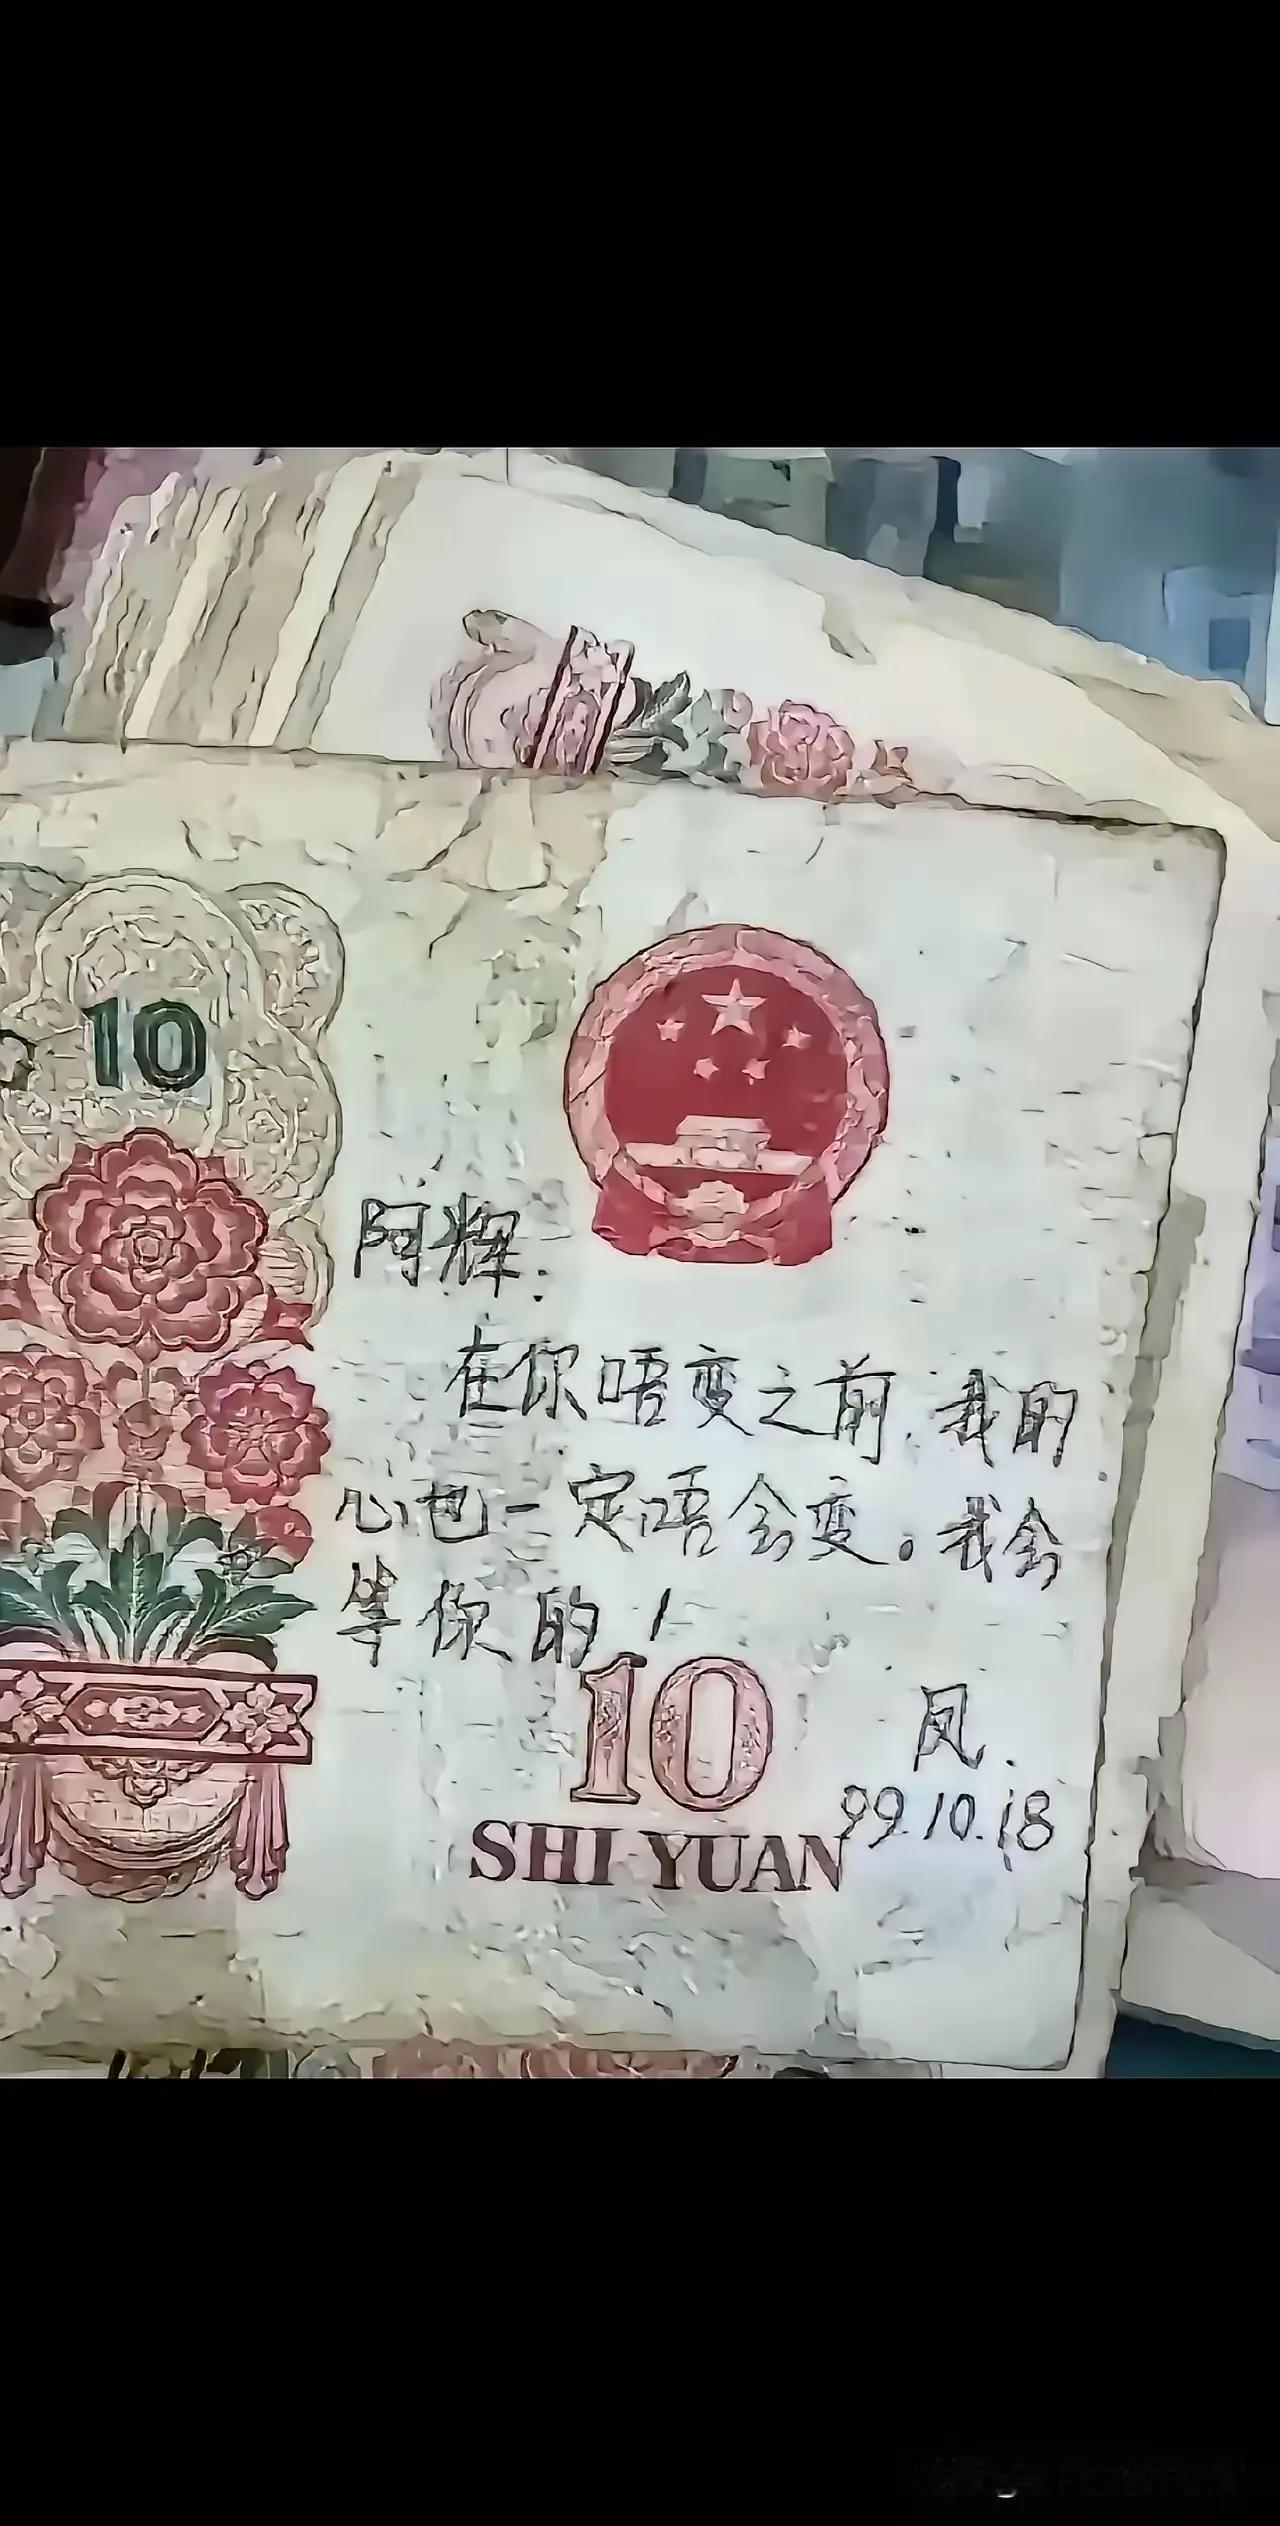 10
阿辉:
在你唔变之前,我的
心也一定唔会变。我会
等你的!
10
凤.
99.10.18
SHI YUAN